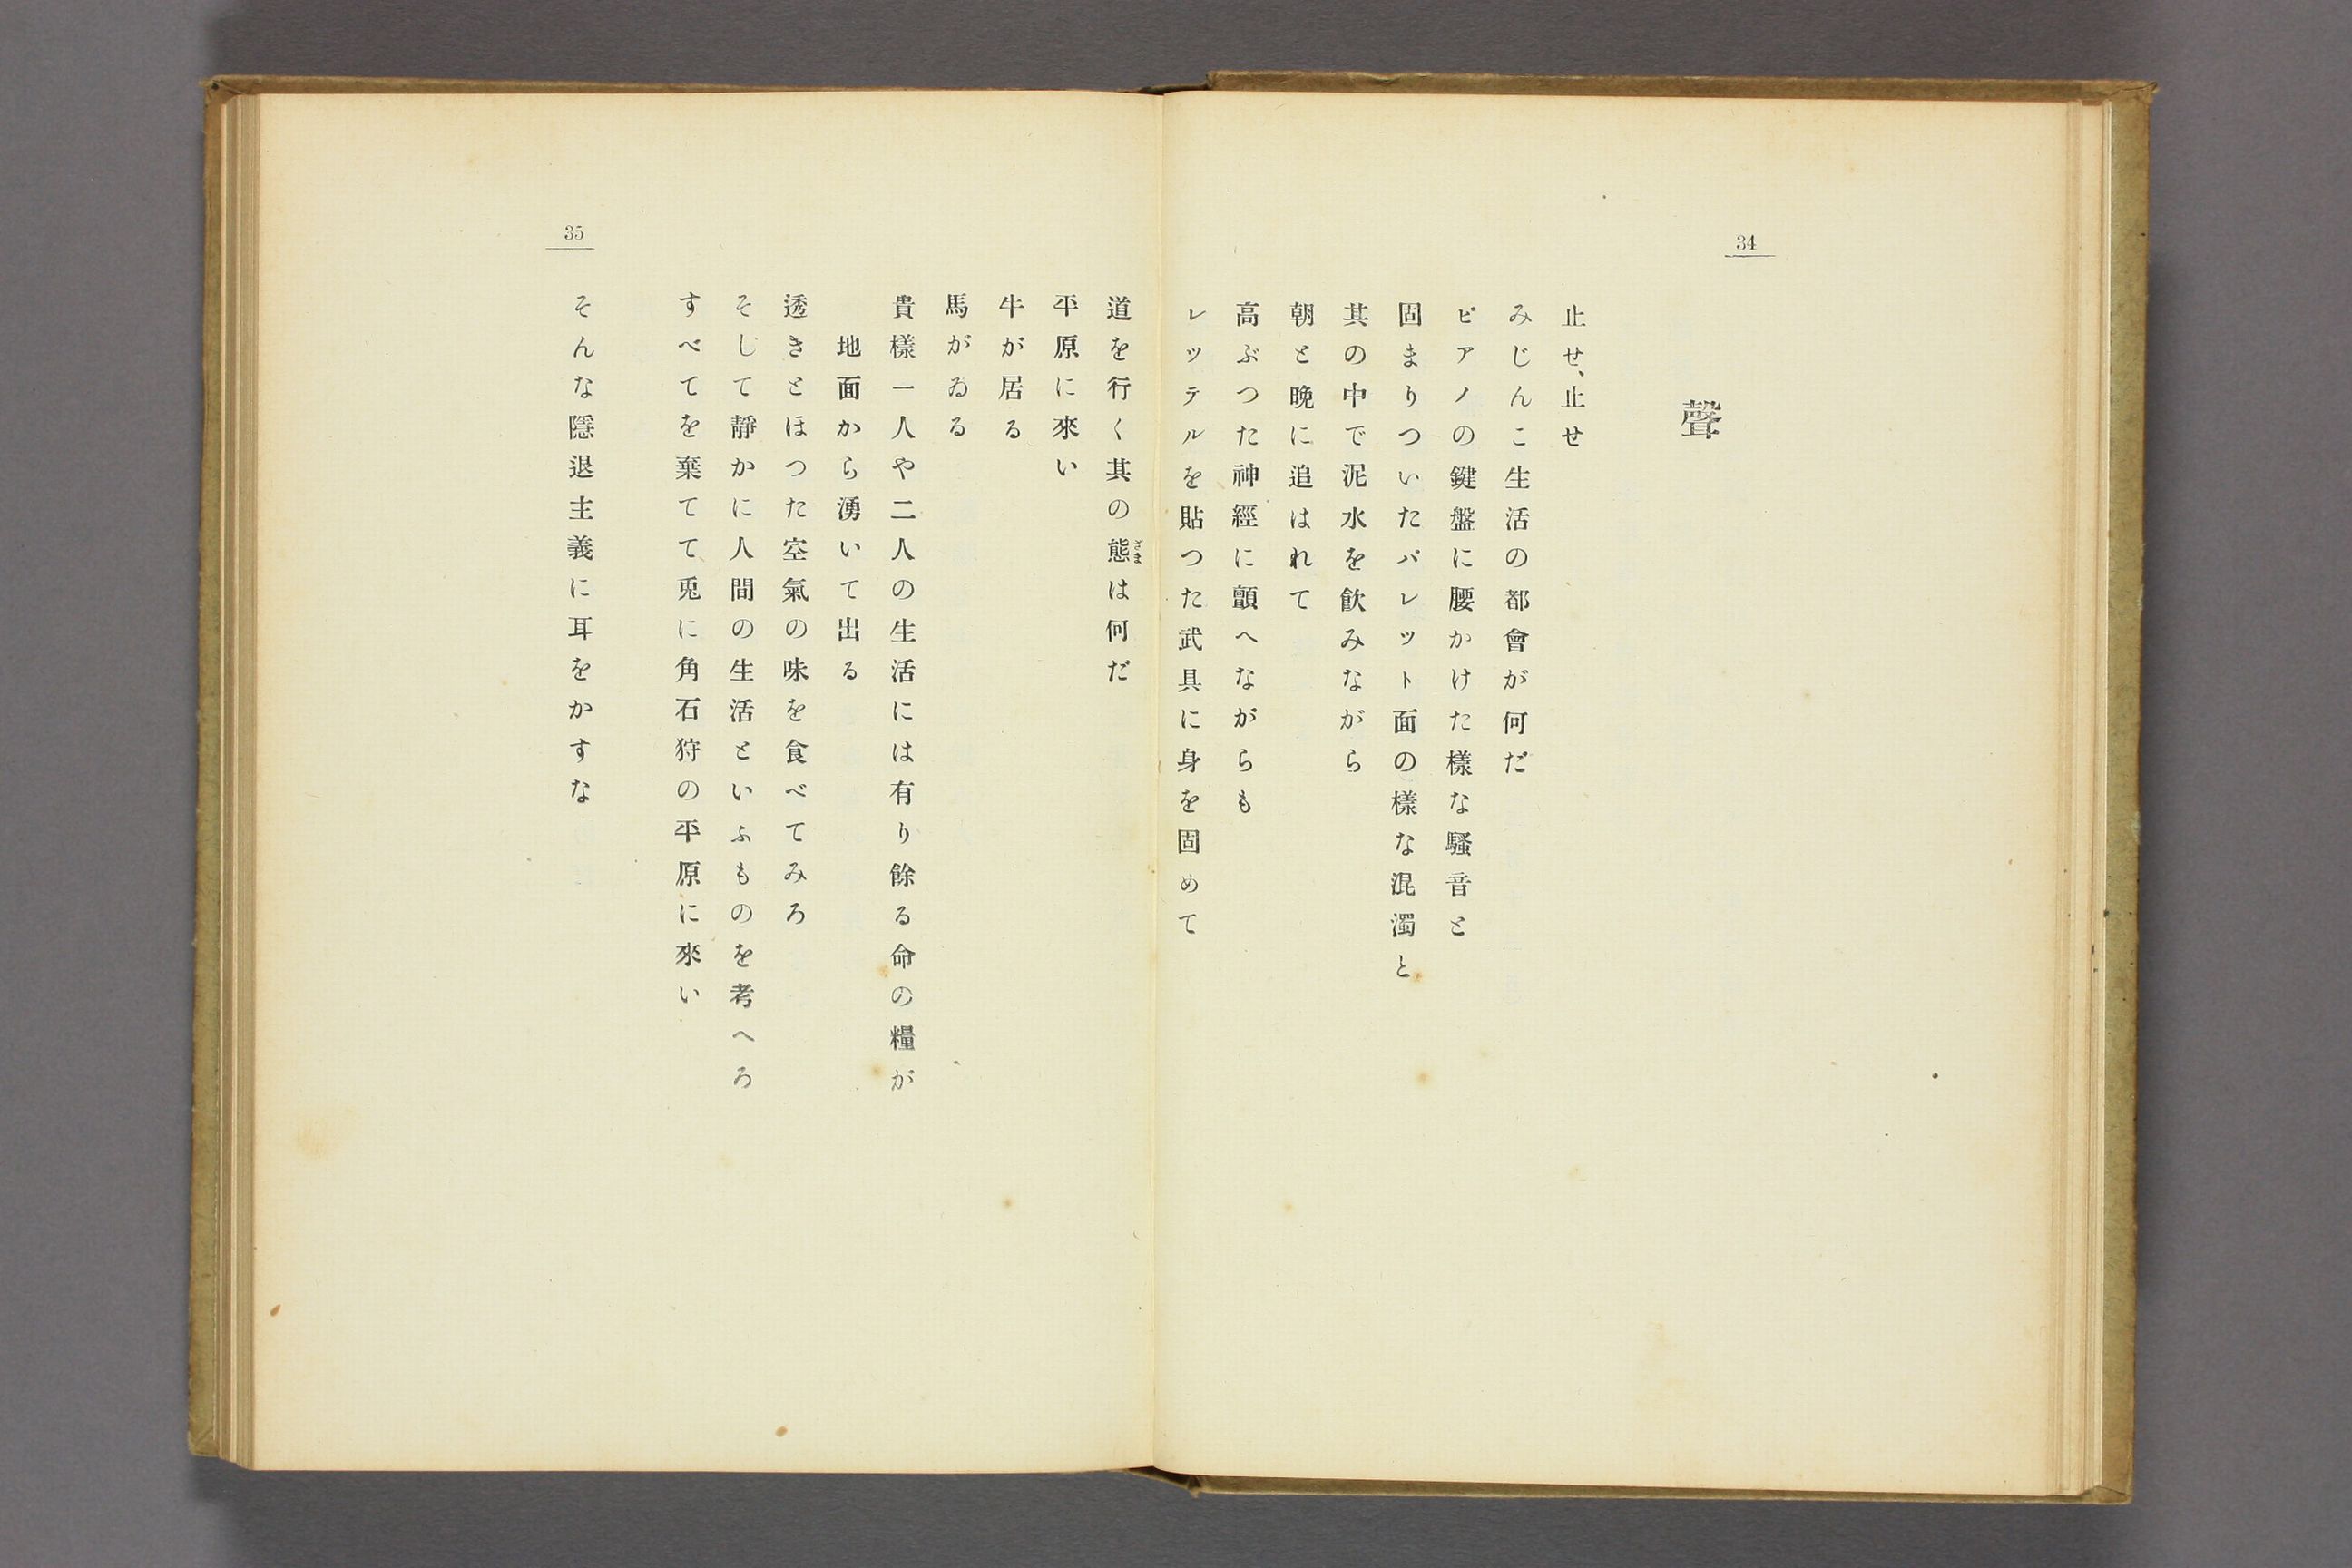 34
聲
止せ、止せ
みじんこ生活の都會が何だ
ピアノの鍵盤に腰かけた樣な騷音と
固まりついたパレツト面の樣な混濁と
其の中で泥水を飮みながら
朝と晩に追はれて
高ぶつた神經に顫へながらも
レツテルを貼つた武具に身を固めて
35
道を行く其の態ざまは何だ
平原に來い
牛が居る
馬がゐる
貴樣一人や二人の生活には有り餘る命の糧が
地面から湧いて出る
透きとほつた空氣の味を食べてみろ
そして靜かに人間の生活といふものを考へろ
すべてを棄てて兎に角石狩の平原に來い
そんな隱退主義に耳をかすな